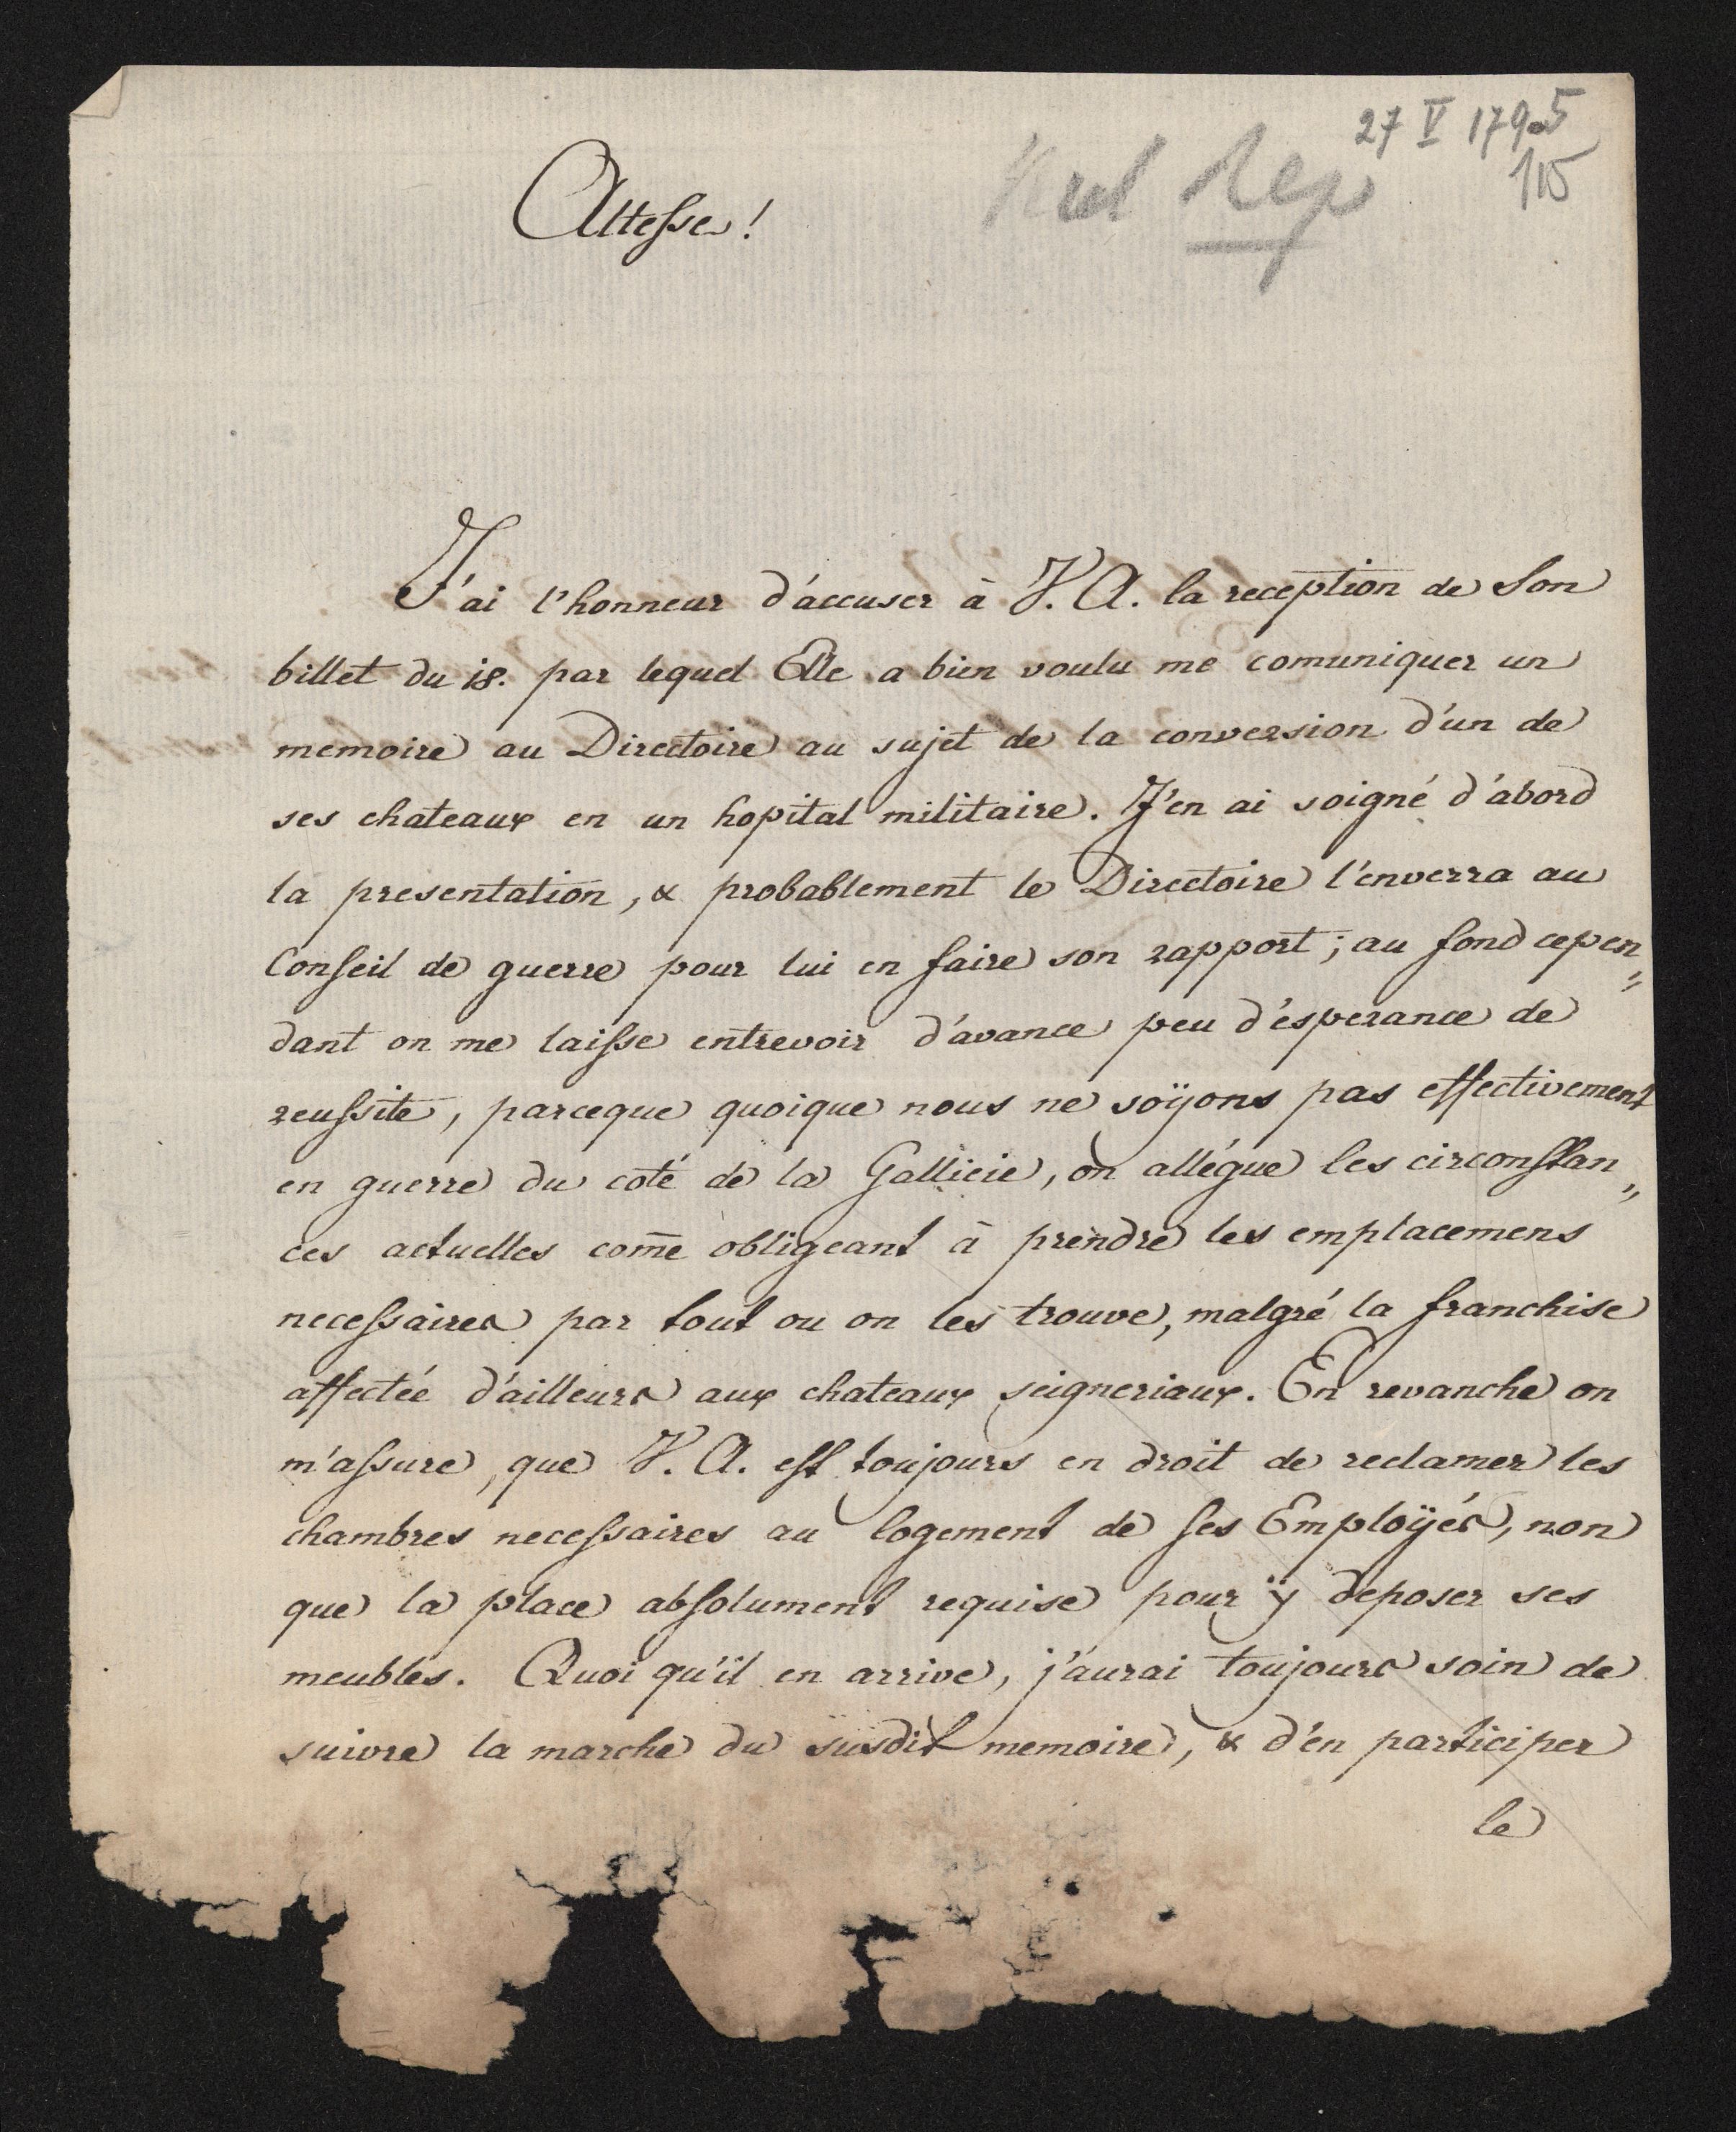 27 V 1795
115
Rep
Altesse!
J'ai l'honneur d'accuser à V. A. la reception de Son
billet du 18. par lequel Elle a bien voulu me comuniquer un
memoire au Directoire au sujet de la conversion d'un de
ses chateaux en un hopital militaire. J'en ai soigné d'abord
la presentation, & probablement le Directoire l'enverra au
Conseil de guerre pour lui en faire son rapport; au fond cepen„
dant on me laisse entrevoir d'avance peu d'ésperance de
reussite, parceque quoique nous ne soÿons pas effectivement
en guerre du coté de la Gallicie, on allégue les circonstan„
ces actuelles com̄e obligeant à prendre les emplacemens
necessaires par tout ou on les trouve, malgré la franchise
affectée d'ailleurs aux chateaux seigneriaux. En revanche on
m'assure, que V. A. est toujours en droit de reclamer les
chambres necessaires au logement de ses Emploÿés, non
que la place absolument requise pour ÿ deposer ses
meubles. Quoi qu'il en arrive, j'aurai toujours soin de
suivre la marche du susdit memoire, & d'en participer
le